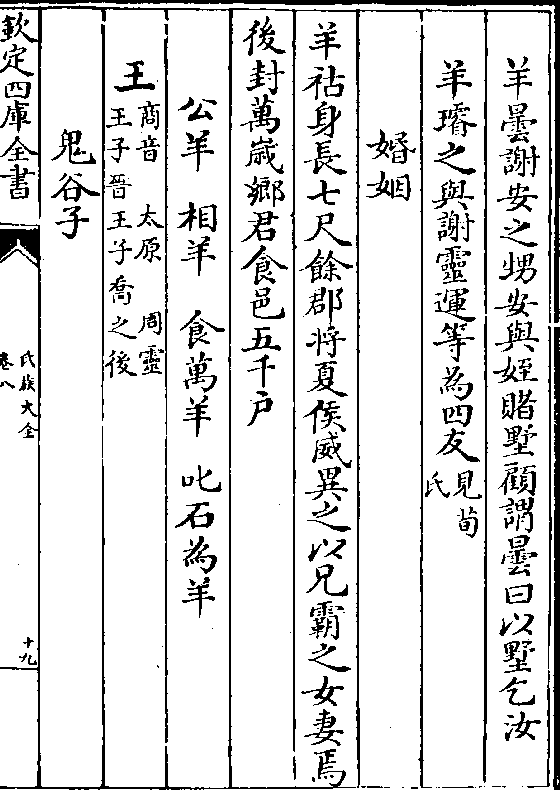 羊曇謝安之甥安與姪賭墅顧謂曇曰以墅乞汝
羊璿之與謝靈運等為四友見荀氏
婚姻
羊祜身長七尺餘郡將夏侯威異之以兄霸之女妻焉
後封萬嵗鄉君食邑五千戶
公羊 相羊 食萬羊 叱石為羊
王商音 太原 周靈
王子晉王子喬之後
鬼谷子
欽定四庫全書
氏族大全
卷八
十九